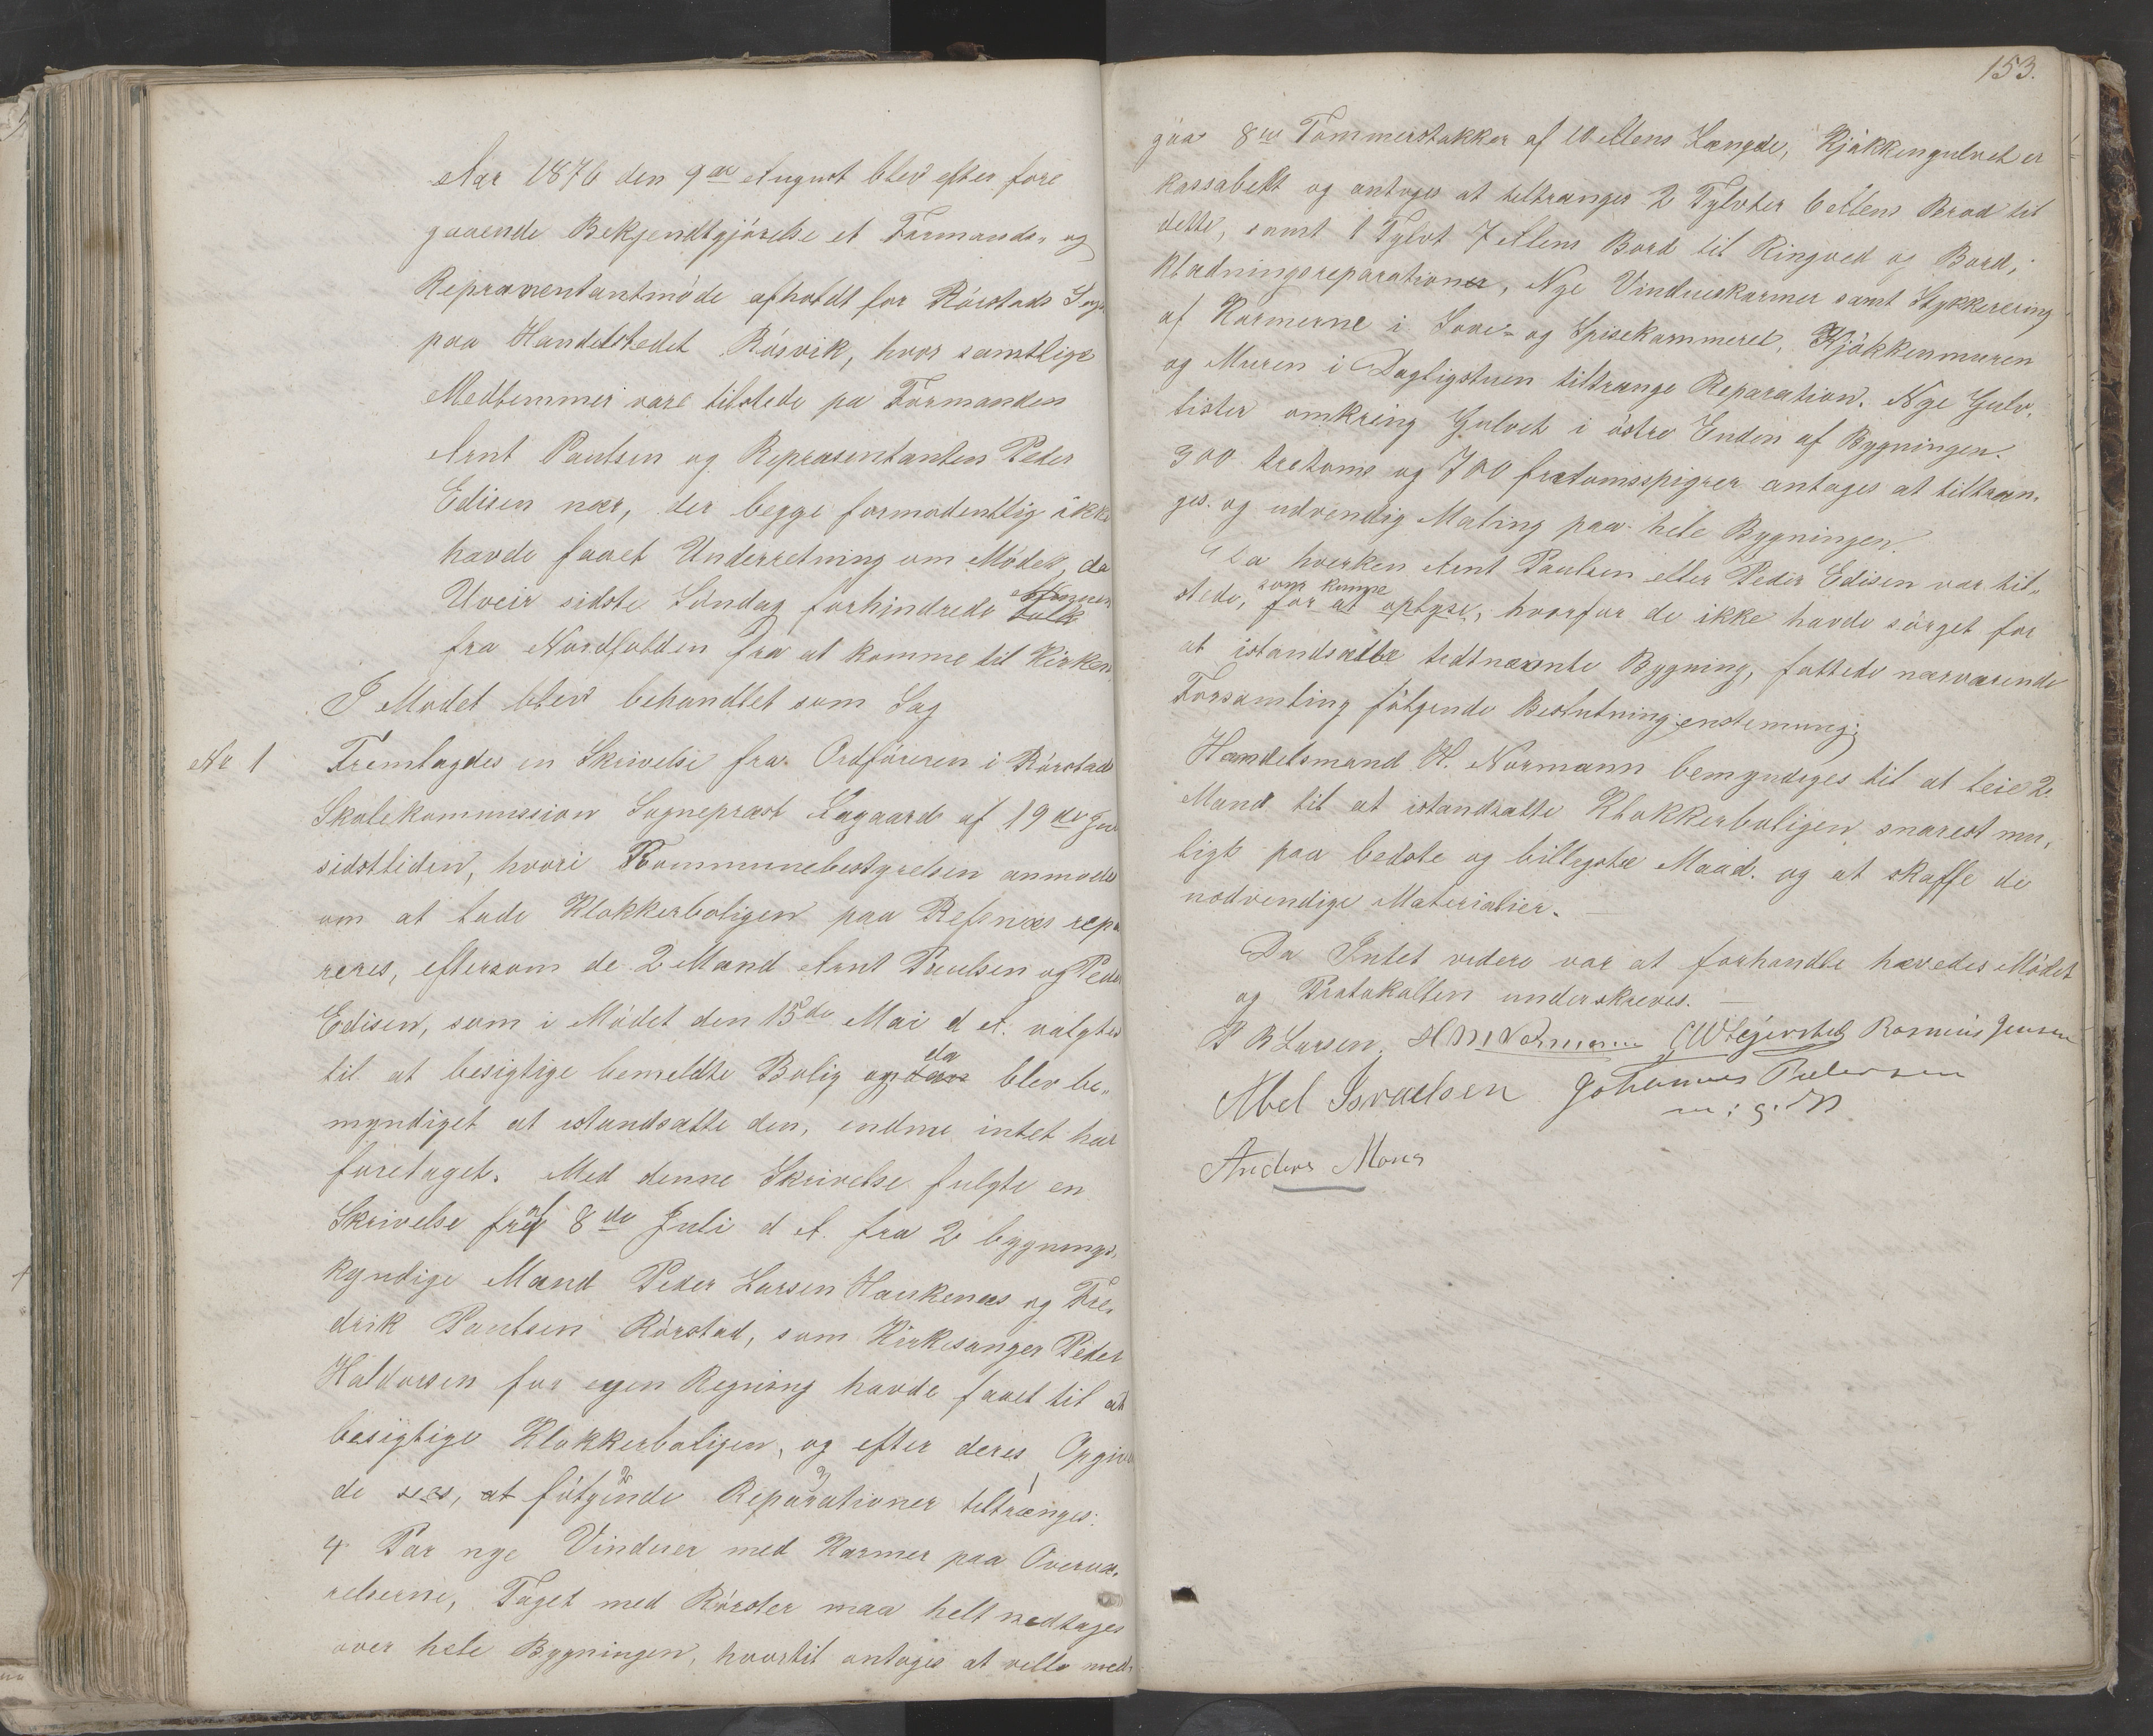 Aar 1876 den 9de August blev efter fore
gaaende Bekjendtgjörelse et Formands- og
Repræsentantmöde afholdt for Rörstads Sogn
paa Handelstedet Rösvik, hvor samtlige
Medlemmer vare tilstede pa Formanden
Arnt Paulsen og Repræsentanten Peder
Edisen nær, der begge formodentlig ikke
havde faaet Underretning om Mödet, da
Uveir sidste Söndag forhindrede Folk
fra Nordfolden fra at komme til Kirken.
I Mödet blev behandlet som Sag
No 1 Fremlagdes en Skrivelse fra Ordföreren i Rörstad
Skolekommission Sogneprest Aagaard af 19de Juni
sidstleden, hvori Kommunebestyrelsen anmodes
om at lade Klokkerboligen paa Refsnæs repa
reres, eftersom de 2 Mand Arnt Paulsen og Peder
Edisen, som i Mödet den 15de Mai d A. valgtes
til at besigtige bemeldte Bolig og da blev be„
myndiget at istandsætte den, endnu intet har
foretaget. Med denne Skrivelse fulgte en
Skrivelse af 8de Juli d A. fra 2 bygnings„
kyndige Mænd Peder Larsen Haukenæs og Fre„
drik Paulsen Rörstad, som Kirkesanger Peder
Haldorsen for egen Regning havde faaet til at
besigtige Klokkerboligen, og efter deres Opgiven
de sees, at fölgende Reparationer tiltrænges:
4 Par nye Vinduer med Karmer paa Overvæ„
relserne, Taget med Röster maa helt nedtages
over hele Bygningen, hvortil antages at ville med„
153.
gaa 8te Tömmerstokker af 10 Alens Længde, Kjökkengulvet er
kassabelt og antages at tiltrænges 2 Tylvter 6 Alens Bord til
dette, samt 1 Tylvt 7 Alens Bord til Ringved og Bord„
klædningsreparationer, Nye Vindueskarmer samt Stykkerering
af Karmerne i Sove- og Spisekammeret, Kjökkenmuren
og Muren i Dagligstuen tiltrænge Reparation. Nye Gulv„
lister omkring Gulvet i östre Enden af Bygningen.
900 tretoms og 700 firetomsspigrer antages at tiltræn„
ges. og udvendig Maling paa hele Bygningen.
Da hverken Arnt Paulsen eller Peder Edisen var til„
stede, som kunne oplyse, hvorfor de ikke havde sörget for
at istandsætte ledtnævnte Bygning, fattede nærværende
Forsamling fölgende Beslutning enstemmig:
Handelsmand H. Normann bemyndiges til at leie 2
Mand til at istandsætte Klokkerboligen snarest mu„
ligt paa bedste og billigste Maad. og at skaffe de
nödvendige Materialier.
Da Intet videre var at forhandle hævedes Mödet
og Protokollen underskreves.
P B Larsen. H M Normann C W Lejersted Rasmus Jensen
Abel Israelsen Johannes Pedersen
m: g: P
Anders Mons